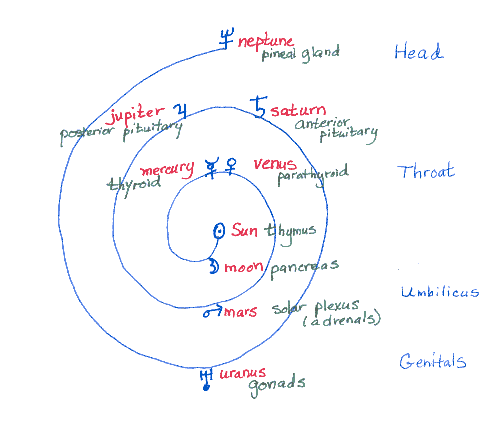 neptune
pineal gland
Head
jupiter
saturn
posterior pituitary
anterior
pituitary
mercury
venus
Throat
thyroid
parathyroid
Sun thymus
moon pancreas
Umbilicus
mars solar plexus
(adrenals)
Genitals
uranus
gonads